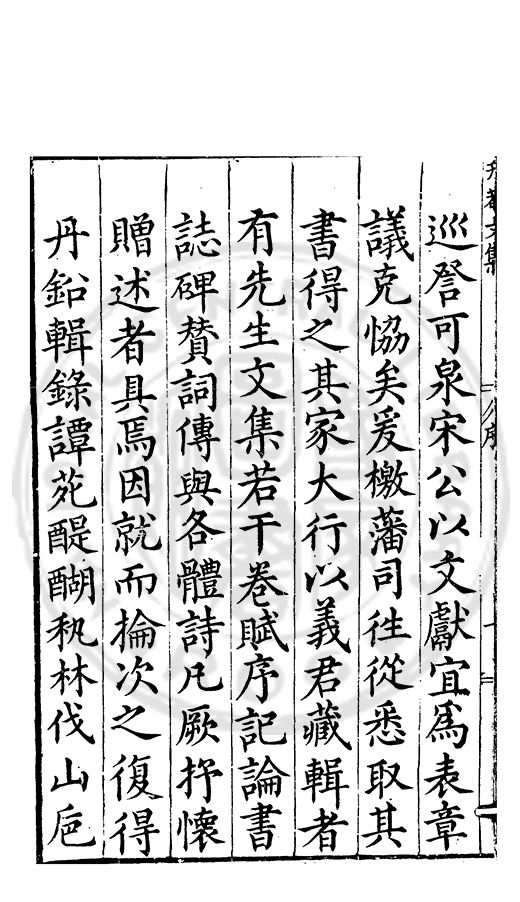 升菴文集
序
巡詧可泉宋公以文獻宜爲表章
議克恊矣爰檄藩司徃從悉取其
書得之其家大行以義君藏輯者
有先生文集若干卷賦序記論書
誌碑賛詞傳與各體詩凡厥抒懷
贈述者具焉因就而掄次之復得
丹鉛輯錄譚苑醍醐秇林伐山巵